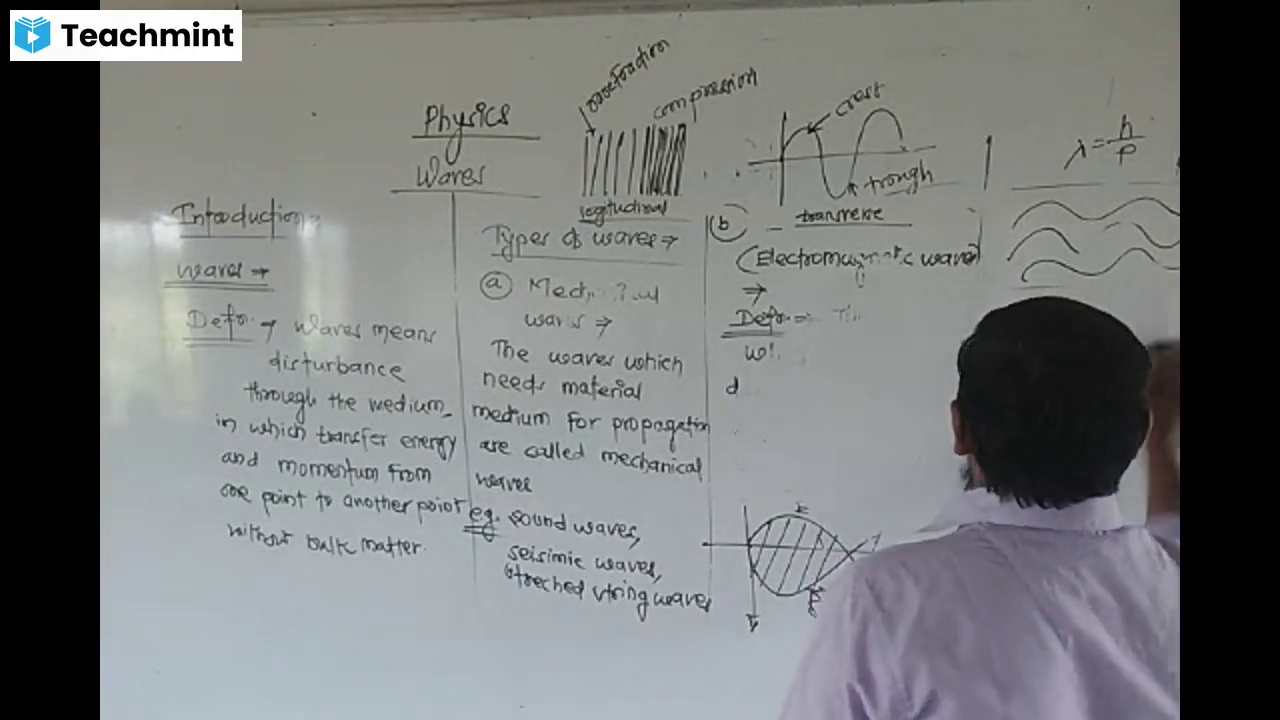 Teachmint
Physics
Waves
compression
crest
trough
λ = h/p
legitudinal
transverse
Introduction
Types of waves ⇒
(b)
waves →
(a)
waves ⇒
⇒
Defn. → Waves means
disturbance
through the medium,
in which transfer energy
and momentum from
one point to another point
without bulk matter.
The waves which
needs material
medium for propagation
are called mechanical
waves
eg. sound waves,
seisimic waves,
streched string waves
Defn. ⇒
d
E